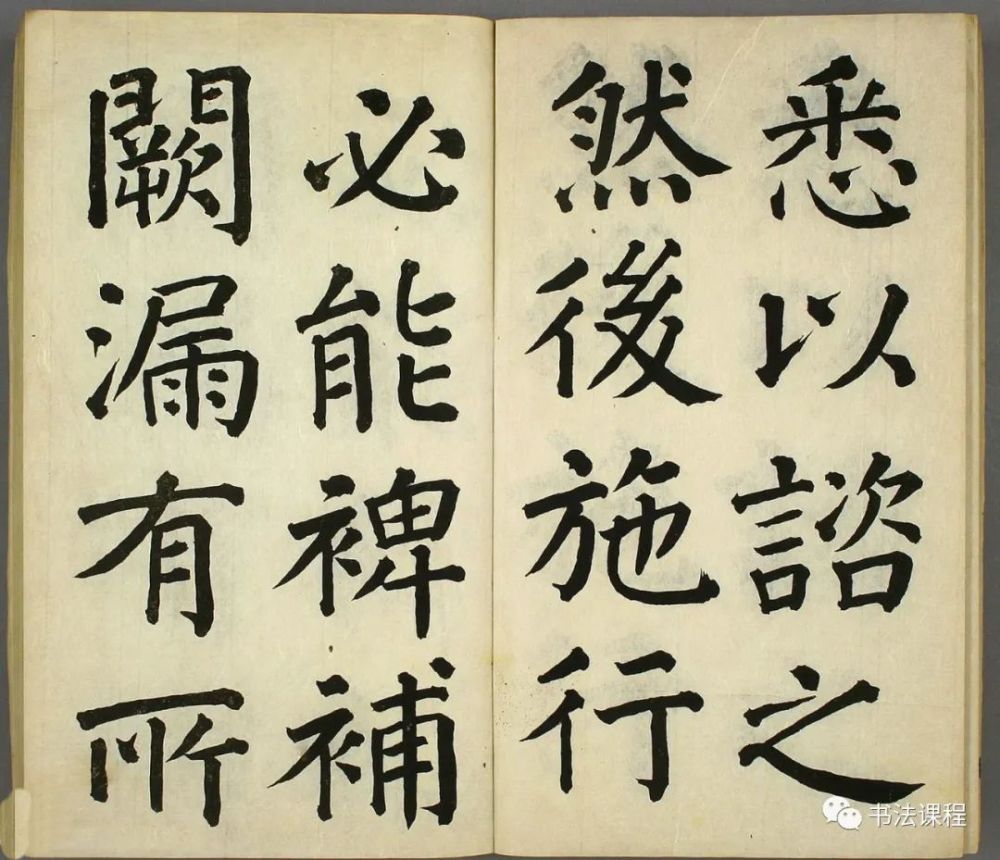 悉以諮之
然後施行
必能裨補
闕漏有所
书法课程